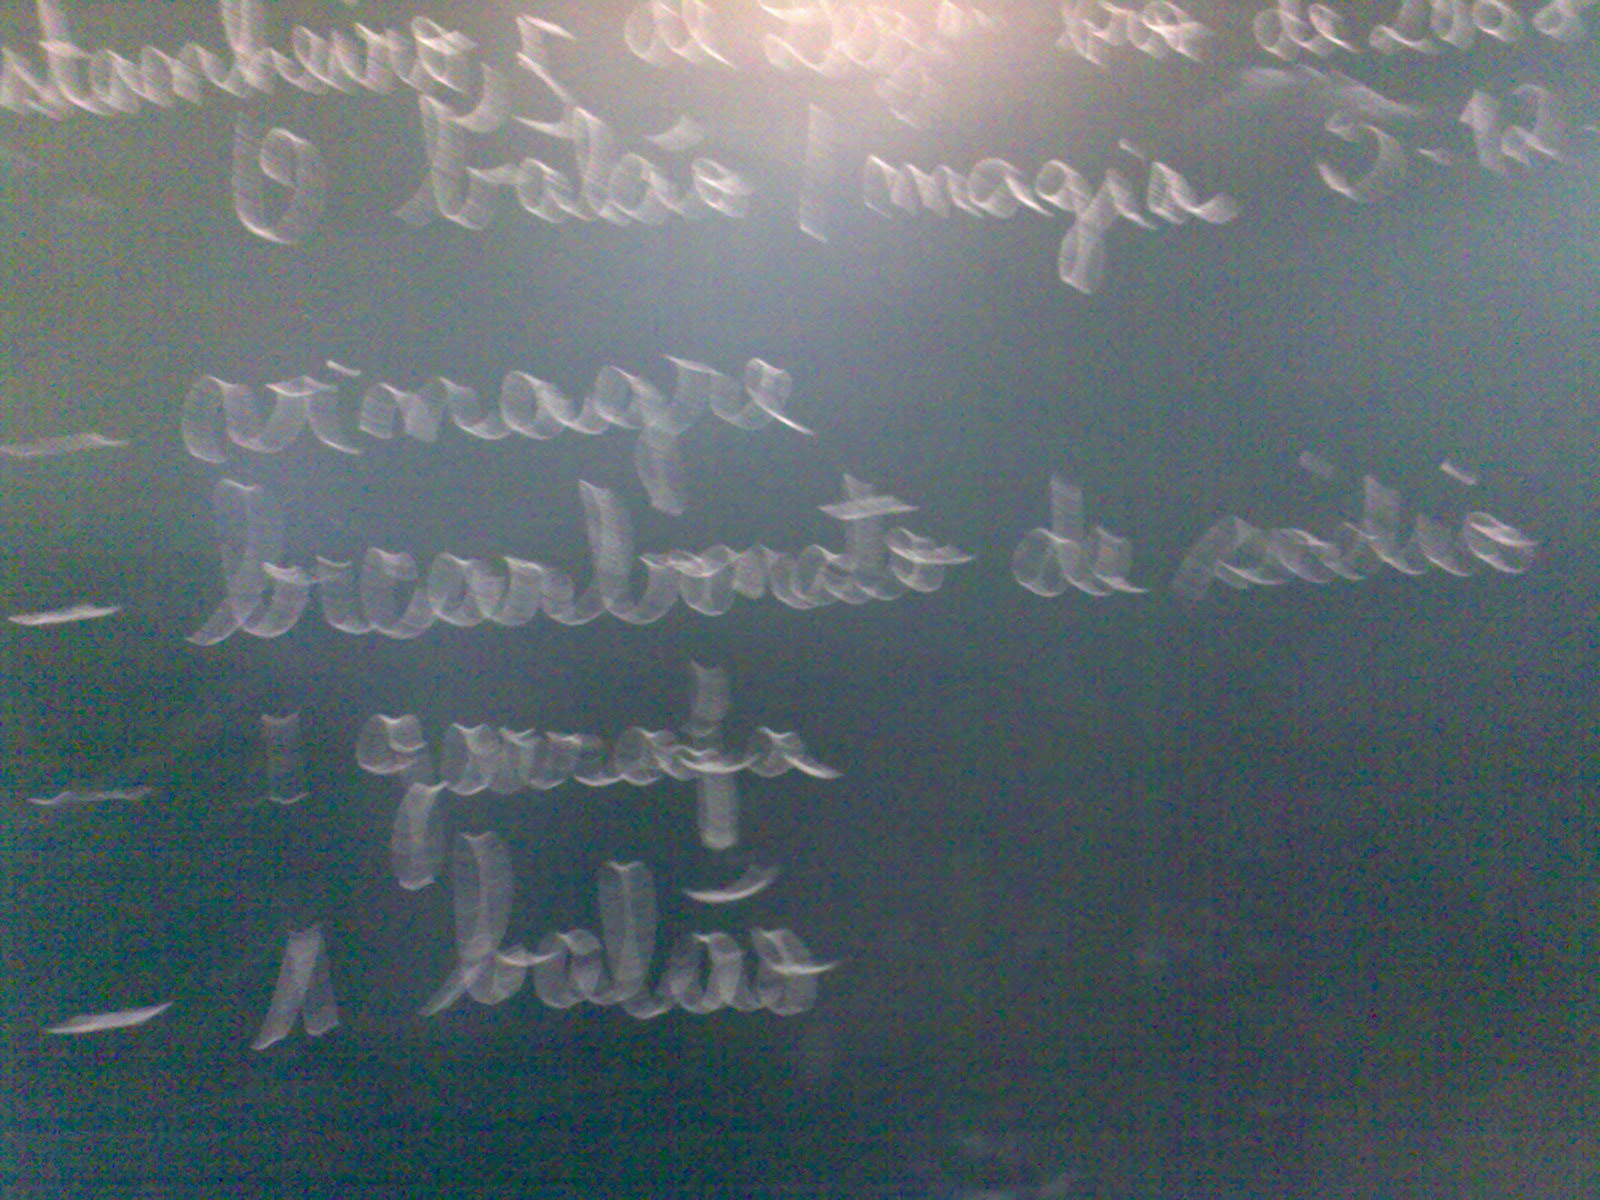 de de
O balão magia 5-12
- vinagre
- bicarbonato de sódio
- 1 garrafa
- 1 balão